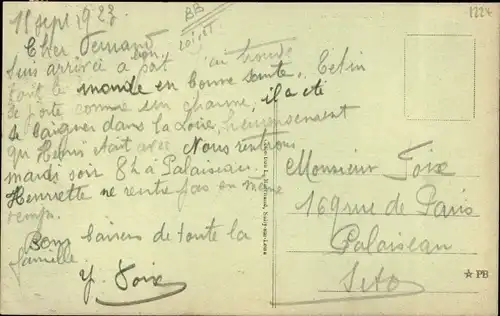 11 sept 1923
BB
1224
Cher Fernand
suis arrivée a bon port j'ai trouvé
tout le monde en bonne santé. 
se porte comme un charme, il a été
se baigner dans la Loire, heureusement
qu'Henri était avec Nous rentrons
mardi soir 8h à Palaiseau.
Henriette ne rentre pas en même
temps.
Bons baisers de toute la
famille.
Y. Foix
Monsieur Foix
169 rue de Paris
Palaiseau
S et O
★ PB